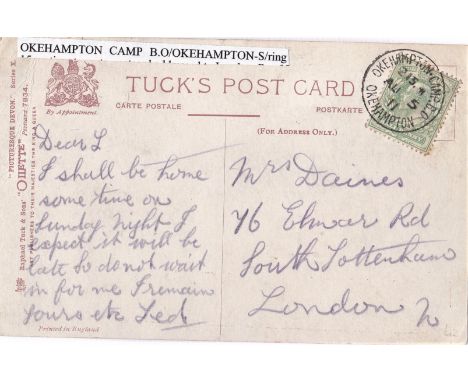 OKEHAMPTON CAMP B.O/OKEHAMPTON-S/ring
TUCK'S POST CARD
CARTE POSTALE
POSTKARTE
(FOR ADDRESS ONLY.)
By Appointment.
"PICTUREsQUE DEVON." Series I.
Raphael Tuck & Sons' "OILETTE" Postcard 7934.
ART PUBLISHERS TO THEIR MAJESTIES THE KING & QUEEN
OKEHAMPTON CAMP B.O.
AU 5
11
OKEHAMPTON
Dear L
I shall be home
some time on
Sunday Night I
expect it will be
late So do not wait
in for me I remain
yours etc Ted
Mrs Daines
76 Elmar Rd
South Tottenham
London N
Printed in England